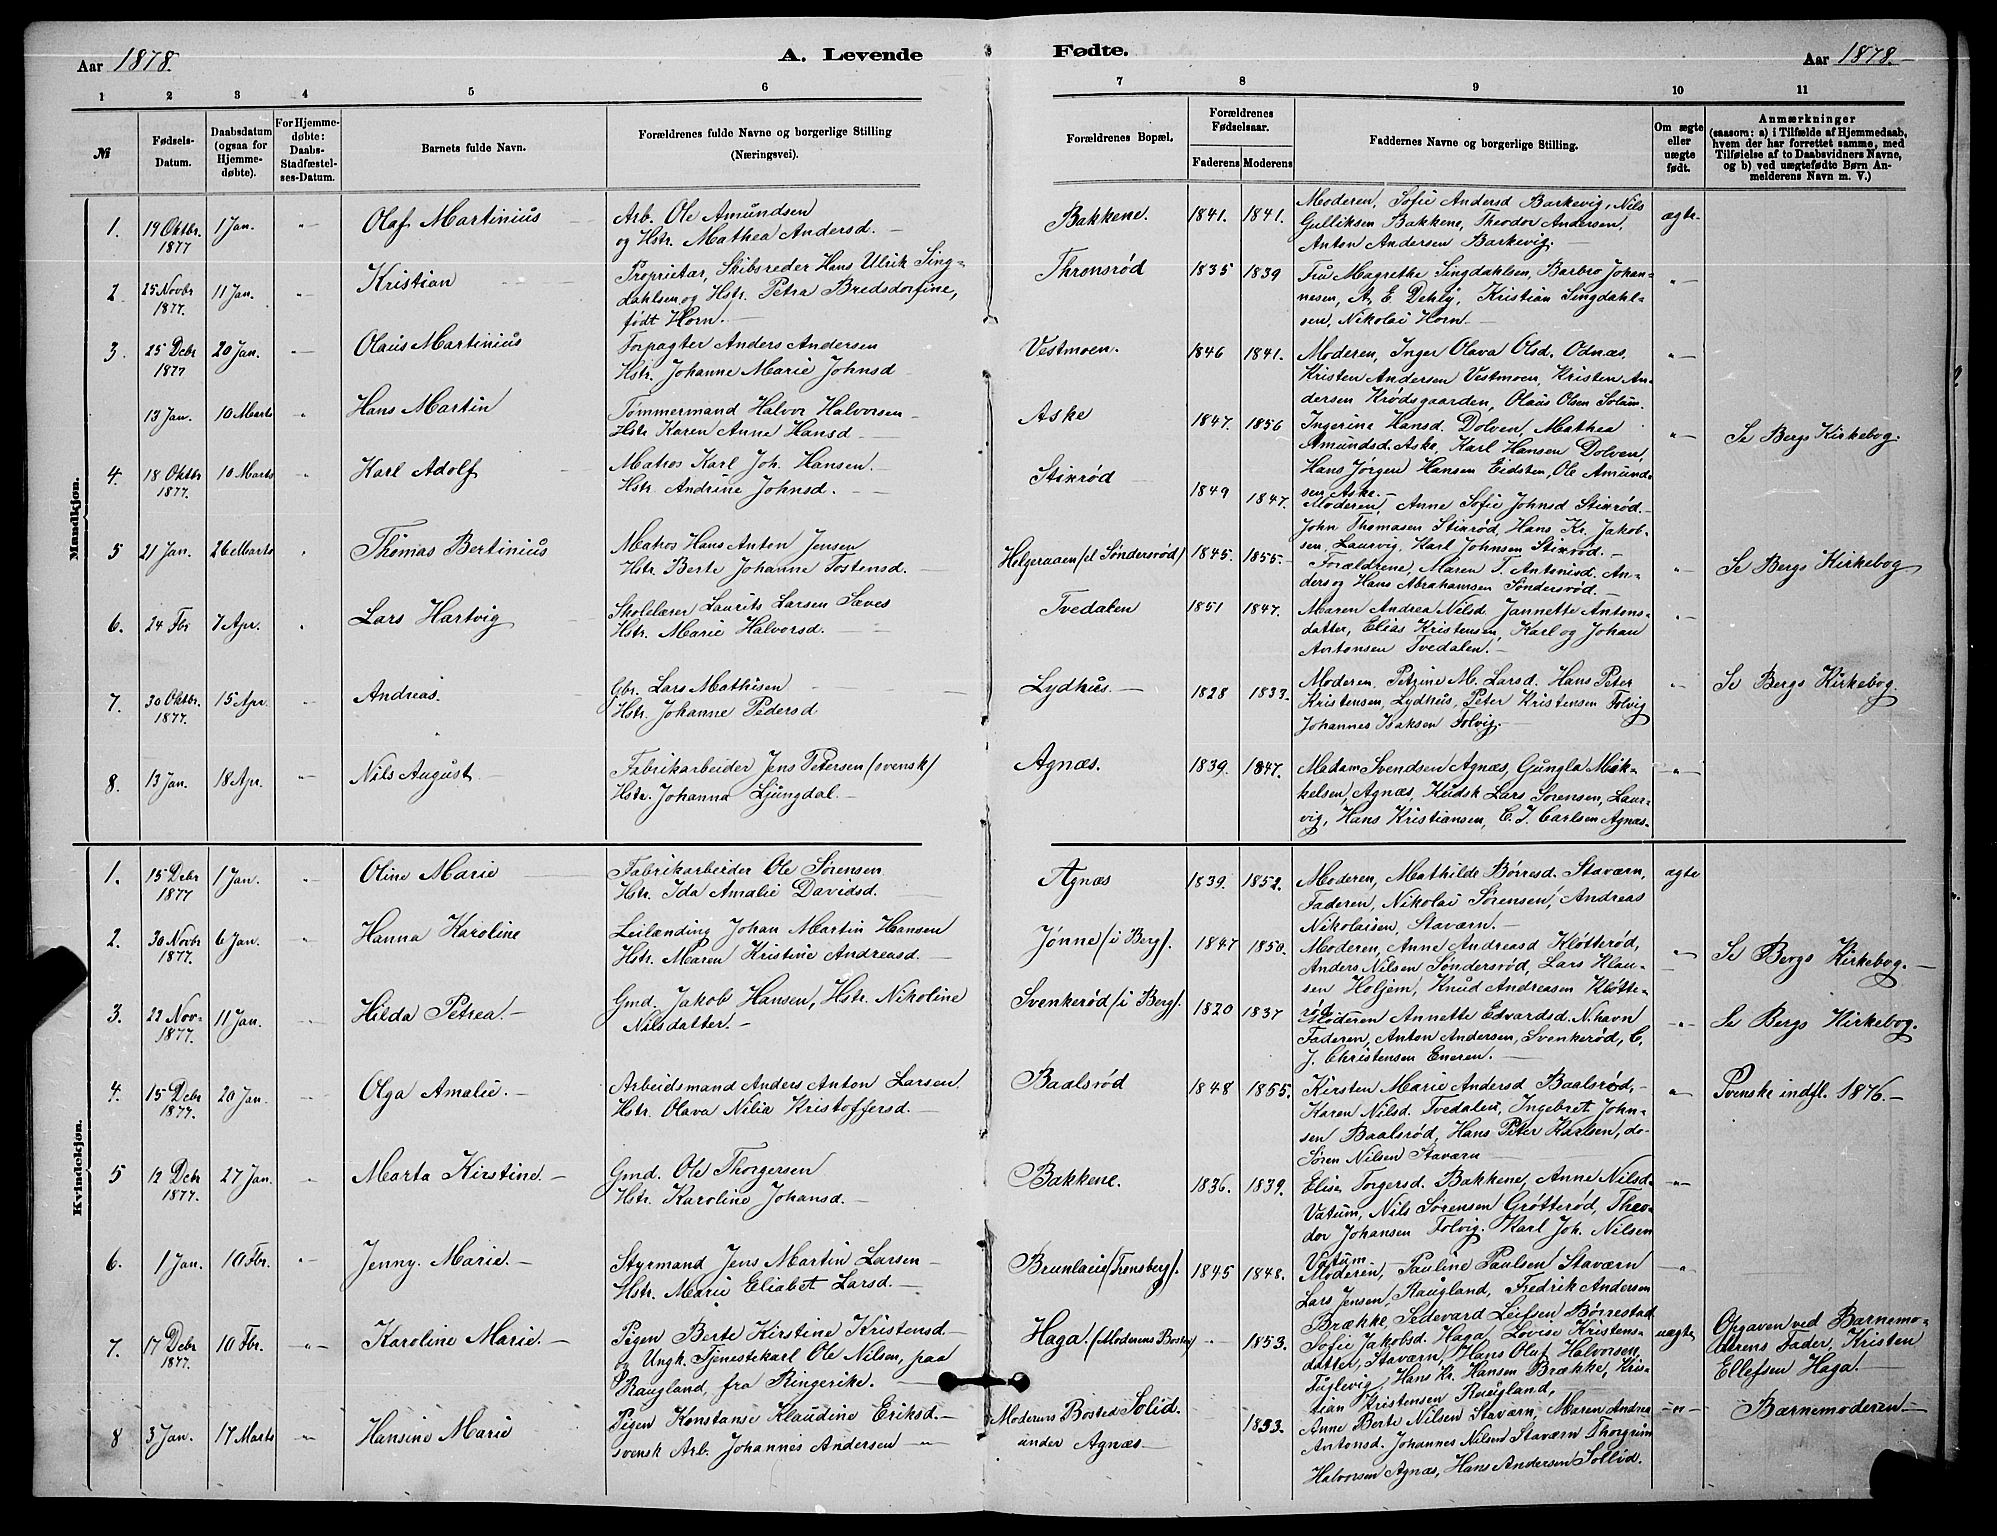 Aar 1878.
A. Levende
Fødte.
Aar 1878.
1 2 3 4 5 6 7 8 9 10 11
№
Fødsels-
Datum.
Daabsdatum
(ogsaa for
Hjemme-
døbte).
For Hjemme-
døbte:
Daabs-
Stadfæstel-
ses-Datum.
Barnets fulde Navn.
Forældrenes fulde Navne og borgerlige Stilling
(Næringsvei).
Forældrenes Bopæl.
Forældrenes
Fødselsaar.
Faderens Moderens
Faddernes Navne og borgerlige Stilling.
Om ægte
eller
uægte
født.
Anmærkninger
(saasom: a) i Tilfælde af Hjemmedaab,
hvem der har forrettet samme, med
Tilføielse af to Daabsvidners Navne,
og b) ved uægtefødte Børn An-
melderens Navn m. V.)
Mandkjøn.
1. 19 Oktbr. 1877 1 Jan. " Olaf Martinius
Arb. Ole Amundsen
og Hstr. Mathea Andersd.
Bakkene. 1841. 1841.
Moderen, Sofie Andersd Barkevig, Nils
Gulliksen Bakkene, Theodor Andersen,
Anton Andersen Barkevig.
ægte
2 25 Novbr 1877. 11 Jan. " Kristian
Proprietær, Skibsreder Hans Ulrik Sing-
dahlsen og Hstr. Petra Bredsdorfine,
født Horn.
Thronsrød 1835 1839
Fru Magrethe Singdahlsen, Barbro Johan-
nesen, A. E. Dehly, Kristian Singdahl-
sen, Nikolai Horn
"
3. 25 Debr 1877 20 Jan. Olaus Martinius
Forpagter Anders Andersen
Hstr. Johanne Marie Johnsd
Vestmoen. 1846 1841.
Moderen, Inger Olava Olsd. Odnæs,
Kristen Andersen Vestmoen, Kristen An-
dersen Krødsgaarden, Olaus Olsen Solum.
"
13 Jan. 10 Marts " Hans Martin
Tømmermand Halvor Halvorsen
Hstr Karen Anne Hansd
Aske 1847. 1856
Ingerine Hansd. Dolven, Mathea
Amundsd. Aske, Karl Hansen Dolven,
Hans Jørgen Hansen Eidsten, Ole Amund-
sen Aske.
" Se Bergs Kirkebog.
4. 18 Oktbr 1877. 10 Marts " Karl Adolf
Matros Karl Joh. Hansen.
Hstr. Andrine Johnsd.
Stixrød 1849 1847.
Moderen, Anne Sofie Johnsd Stixrød.
John Thomasen Stixrød, Hans Kr. Jakob-
sen, Laurvig, Karl Johnsen Stixrød.
5 21 Jan. 26 Marts " Thomas Bertinius
Matros Hans Anton Jensen
Hstr. Berte Johanne Tostensd.
Holgeraaen (el Søndersrød) 1845. 1855.
Forældrene, Maren T. Antonisd. An-
ders og Hans Abrahamsen Søndersrød.
" Se Bergs Kirkebog
6. 24 Fbr 7 Apr. " Lars Hartvig
Skolelærer Laurits Larsen Sæves
Hstr. Marie Halvorsd.
Tvedalen 1851 1847.
Maren Andrea Nilsd. Jannette Antons-
datter, Elias Kristensen, Karl og Johan
Antonsen Tvedalen.
"
7. 30 Oktbr. 1877. 15 Apr. " Andreas.
Gbr. Lars Mathisen
Hstr. Johanne Pedersd
Lydhus. 1828 1833.
Moderen. Petrine M. Larsd. Hans Peter
Kristensen, Lydhus, Peter Kristensen Folvig
Johannes Isaksen Folvig.
" Se Bergs Kirkebog.
8. 13 Jan. 18 Apr. " Nils August
Fabrikarbeider Jens Petersen (svensk)
Hstr. Johanna Ljungdal.
Agnæs. 1839. 1847.
Madam Svendsen Agnæs, Gungla Mik-
kelsen, Agnæs, Kudsk Lars Sørensen, Laur-
vig, Hans Kristiansen, C. J. Carlsen Agnæs.
"
Kvindekjøn.
1. 15 Debr 1877 1 Jan. " Oline Marie
Fabrikarbeider Ole Sørensen
Hstr. Ida Amalie Davidsd.
Agnæs 1839. 1852.
Moderen, Mathilde Børresd. Staværn,
Faderen, Nikolai Sørensen, Andreas
Nikolaisen, Staværn.
ægte
2. 30 Novbr 1877. 6 Jan. " Hanna Karoline
Leilænding Johan Martin Hansen
Hstr. Maren Kristine Andreasd.
Jønne (i Berg). 1847 1850.
Moderen, Anne Andreasd Kløtterød,
Anders Nilsen Søndersrød, Lars Klau-
sen Holjem, Knud Andreasen Kløtte-
rød
" Se Bergs Kirkebog.
3. 22 Nov 1877. 11 Jan. Hilda Petrea.
Gmd. Jakob Hansen, Hstr. Nikoline
Nilsdatter.
Svenkerød (i Berg). 1820 1837
Moderen Annette Edvardsd. N.havn
Faderen, Anton Andersen, Svenkerød, C.
J. Christensen Eneren.
" Se Bergs Kirkebog.
4. 15 Debr 1877. 20 Jan. " Olga Amalie.
Arbeidsmand Anders Anton Larsen
Hstr. Olava Nilia Kristoffersd.
Baalsrød 1848 1855.
Kirsten Marie Andersd Baalsrød,
Karen Nilsd. Tvedalen, Ingebret John-
sen Baalsrød, Hans Peter Karlsen, do
Søren Nilsen Staværn
" Svenske indfl. 1876.
5 12 Debr 1877. 27 Jan. " Marta Kirstine.
Gmd. Ole Thorgersen
Hstr. Karoline Johansd.
Bakkene. 1836. 1839.
Elise Torgersd. Bakkene, Anne Nilsd.
Vatum, Nils Sørensen Grøtterød, Theo-
dor Johansen Folvig. Karl Joh. Nilsen
Vatum.
"
6. 1 Jan. 10 Fbr. " Jenny Marie.
Styrmand Jens Martin Larsen
Hstr. Marie Eliabet Larsd.
Brunlaue (Trensberg). 1845 1848.
Moderen, Pauline Paulsen Staværn
Lars Jensen, Raugland, Fredrik Andersen
Brække, Sedevard Leifsen Børrestad
"
7. 17 Debr 1877. 10 Fbr. " Karoline Marie.
Pigen Berte Kirstine Kristensd
og Ungk. Tjenestekarl Ole Nilsen, paa
Raugland, fra Ringerike.
Haga. (Moderens Bosted) 1853.
Sofie Jakobsd. Haga, Lovise Kristens-
datter, Staværn, Hans Oluf Halvorsen,
Fuglevig, Hans Kr. Hansen Brække, Kris-
tian Kristensen Raugland,
uægte
Opgaven ved Barnemo-
derens Fader, Kristen
Ellefsen Haga.
8 3 Jan. 17 Marts " Hansine Marie
Pigen Konstanse Klaudine Eriksd.
svensk Arb. Johannes Andersen
Moderens Bosted Solid.
under Agnæs
1853.
Anne Berte Nilsen Staværn, Maren Andrea
Antonsd. Johannes Nilsen Staværn Thorgrim
Halvorsen Agnæs, Hans Andersen Sollid.
" Barnemoderen